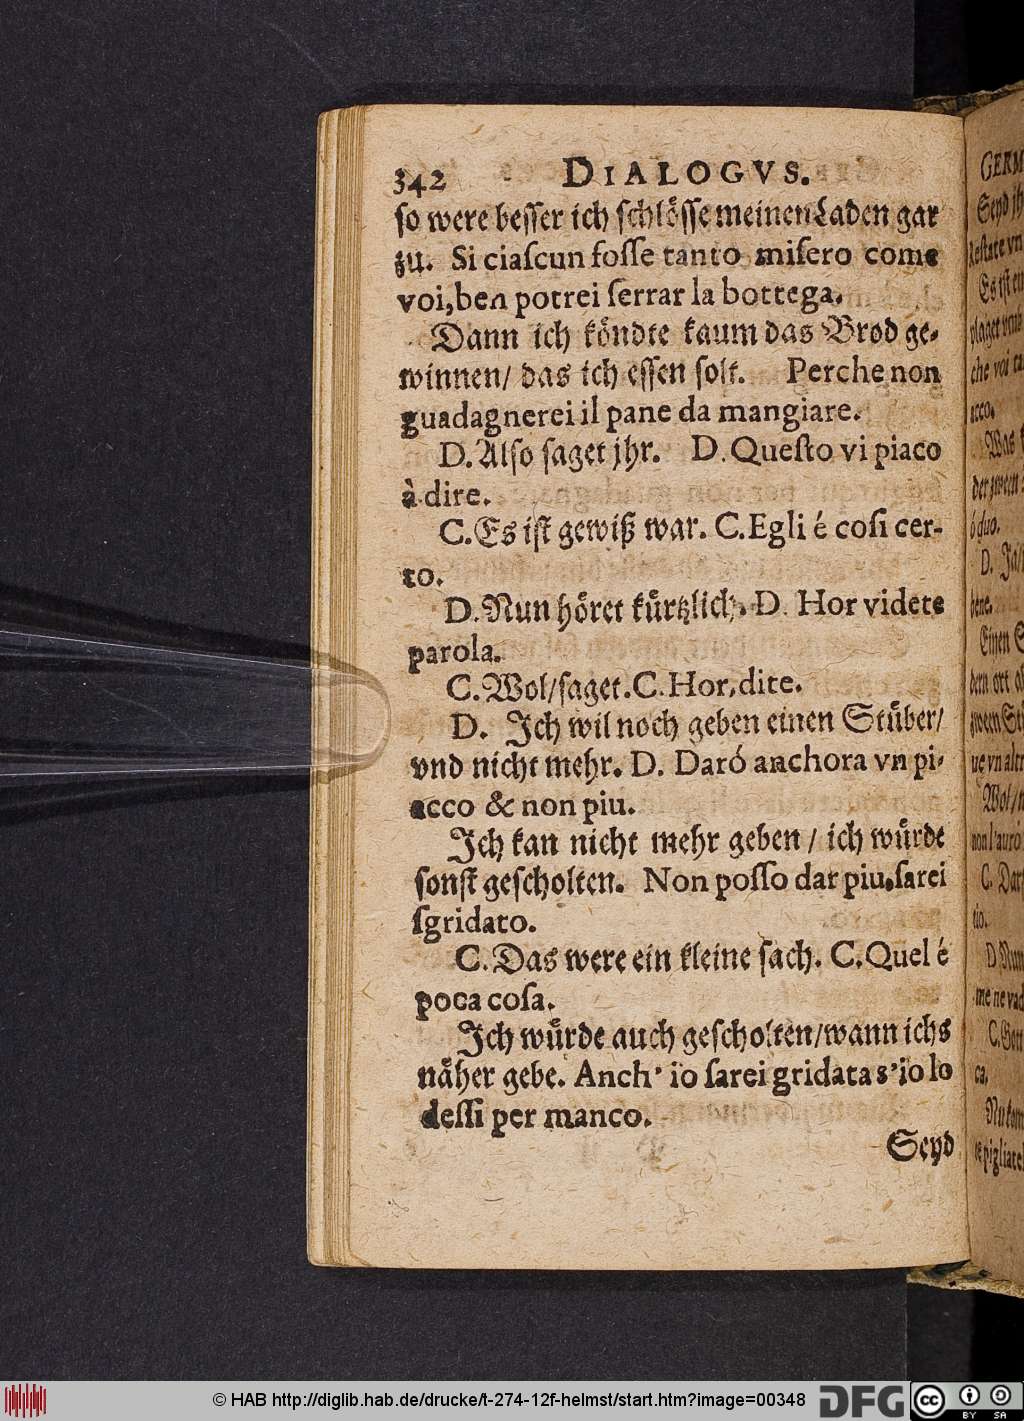 342 DIALOGVS.
ſo were beſſer ich ſchlöſſe meinen Laden gar
zu. Si ciaſcun foſſe tanto miſero come
voi,ben potrei ſerrar la bottega.
Dann ich köndte kaum das Brod ge-
winnen/ das ich eſſen ſolt. Perche non
guadagnerei il pane da mangiare.
D. Alſo ſaget jhr. D. Queſto vi piaco
à dire.
C. Es iſt gewiß war. C. Egli é coſi cer-
to.
D. Nun höret kürtzlich. D. Hor videte
parola.
C. Wol/ſaget. C. Hor, dite.
D. Ich wil noch geben einen Stüber/
vnd nicht mehr. D. Daró anchora vn pi-
acco & non piu.
Ich kan nicht mehr geben / ich würde
ſonſt geſcholten. Non poſſo dar piu, ſarei
ſgridato.
C. Das were ein kleine ſach. C. Quel é
poca coſa.
Ich würde auch geſcholten/wann ichs
näher gebe. Anch' io ſarei gridata s'io lo
deſſi per manco.
Seyd
GERM
Seyd jh
Es iſt
che voi
acco.
Was
der zween
ó duo.
D. Ja/
bene.
Einen S
dern ort
zween Stü
ue vn altr
Wol/
non l'auró
C. Dar
tio.
D Nun
me ne va
C. Gott
ca.
© HAB http://diglib.hab.de/drucke/t-274-12f-helmst/start.htm?image=00348
DFG
cc BY SA